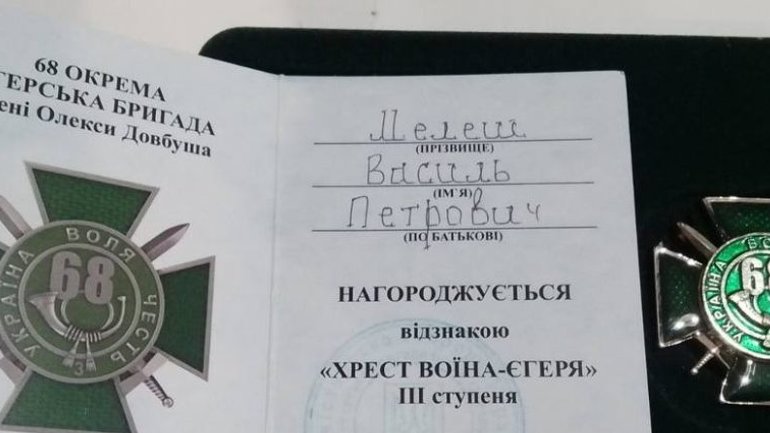 68 ОКРЕМА
ГЕРСЬКА БРИГАДА
ені Олекси Довбуша
УКРАЇНА ВОЛЯ ЧЕСТЬ
68
ЗМ
Мелеш
(ПРІЗВИЩЕ)
Василь
(ІМ`Я)
Петрович
(ПО БАТЬКОВІ)
НАГОРОДЖУЄТЬСЯ
відзнакою
«ХРЕСТ ВОЇНА-ЄГЕРЯ»
III ступеня
УКРАЇНА ВО
68